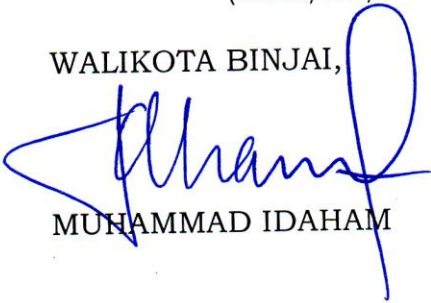 WALIKOTA BINJAI,
MUHAMMAD IDAHAM